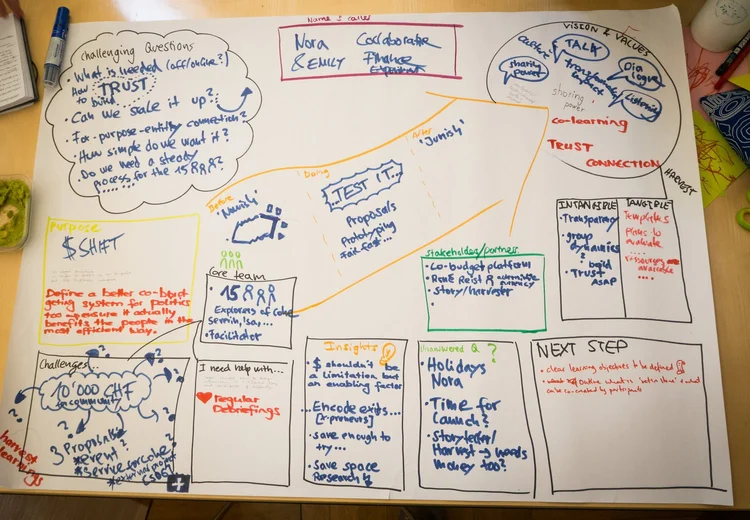 Name & caller
Nora Collaborative
& EMILY Finance
Experiment
Challenging Questions
• What is needed (off/online?)
how to build TRUST
• Can we scale it up?
• For-purpose-entity connection?
• How simple do we want it?
• Do we need a steady
process for the 15
VISION & VALUES
TALK
Dialogue
Listening
sharing
power
sharing
power
co-learning
TRUST
CONNECTION
HARVEST
Before
Doing
After
'Junish'
TEST IT...
Proposals
Prototyping
Fail fast...
Purpose
$SHIFT
Define a better co-budgeting system for politics
too - measure it actually
benefits the people in the
most efficient way.
Core team
• 15
Explorers of
• Facilitator
Stakeholder/partners
• Co-budget platform
• Story/harvester
INTANGIBLE
• Transparency
• group
dynamics
• build
Trust
ASAP
TANGIBLE
Templates
evaluate
ressources
available
Challenges...
10'000 CHF
for community
3 Proposals
*Event?
harvest
learnings
I need help with...
Regular
Debriefings
Insights
• $ shouldn't be
a limitation but
an enabling factor
...Encode exits...
• save enough to
try...
• Save space
Research
Unanswered Q ?
• Holidays
Nora
• Time for
Launch?
• Storyteller/
Harvest → needs
money too?
NEXT STEP
• clear learning objectives to be defined
can be co-created by participants